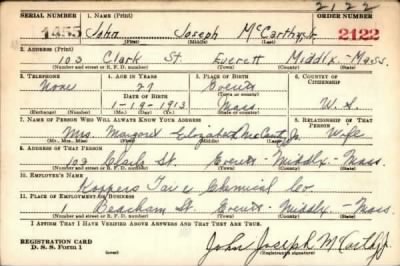 2122
SERIAL NUMBER 1. NAME (Print) ORDER NUMBER
1455 John Joseph McCarthy Jr. 2122
(First) (Middle) (Last)
2. ADDRESS (Print)
103 Clark St. Everett Middlx.-Mass.
(Number and street or R. F. D. number) (Town) (County) (State)
3. TELEPHONE 4. AGE IN YEARS 5. PLACE OF BIRTH 6. COUNTRY OF CITIZENSHIP
None 27 Everett
DATE OF BIRTH (Town or county)
1-19-1913 Mass U.S.
(Exchange) (Number) (Mo.) (Day) (Yr.) (State or country)
7. NAME OF PERSON WHO WILL ALWAYS KNOW YOUR ADDRESS 8. RELATIONSHIP OF THAT PERSON
Mrs. Margaret Elizabeth McCarthy Jr. Wife
(Mr., Mrs., Miss) (First) (Middle) (Last)
9. ADDRESS OF THAT PERSON
103 Clark St. Everett-Middlx-Mass.
(Number and street or R. F. D. number) (Town) (County) (State)
10. EMPLOYER'S NAME
Koppers Tar & Chemical Co.
11. PLACE OF EMPLOYMENT OR BUSINESS
1 Beacham St. Everett-Middlx.-Mass.
(Number and street or R. F. D. number) (Town) (County) (State)
I AFFIRM THAT I HAVE VERIFIED ABOVE ANSWERS AND THAT THEY ARE TRUE.
REGISTRATION CARD
D. S. S. Form 1
John Joseph McCarthy Jr.